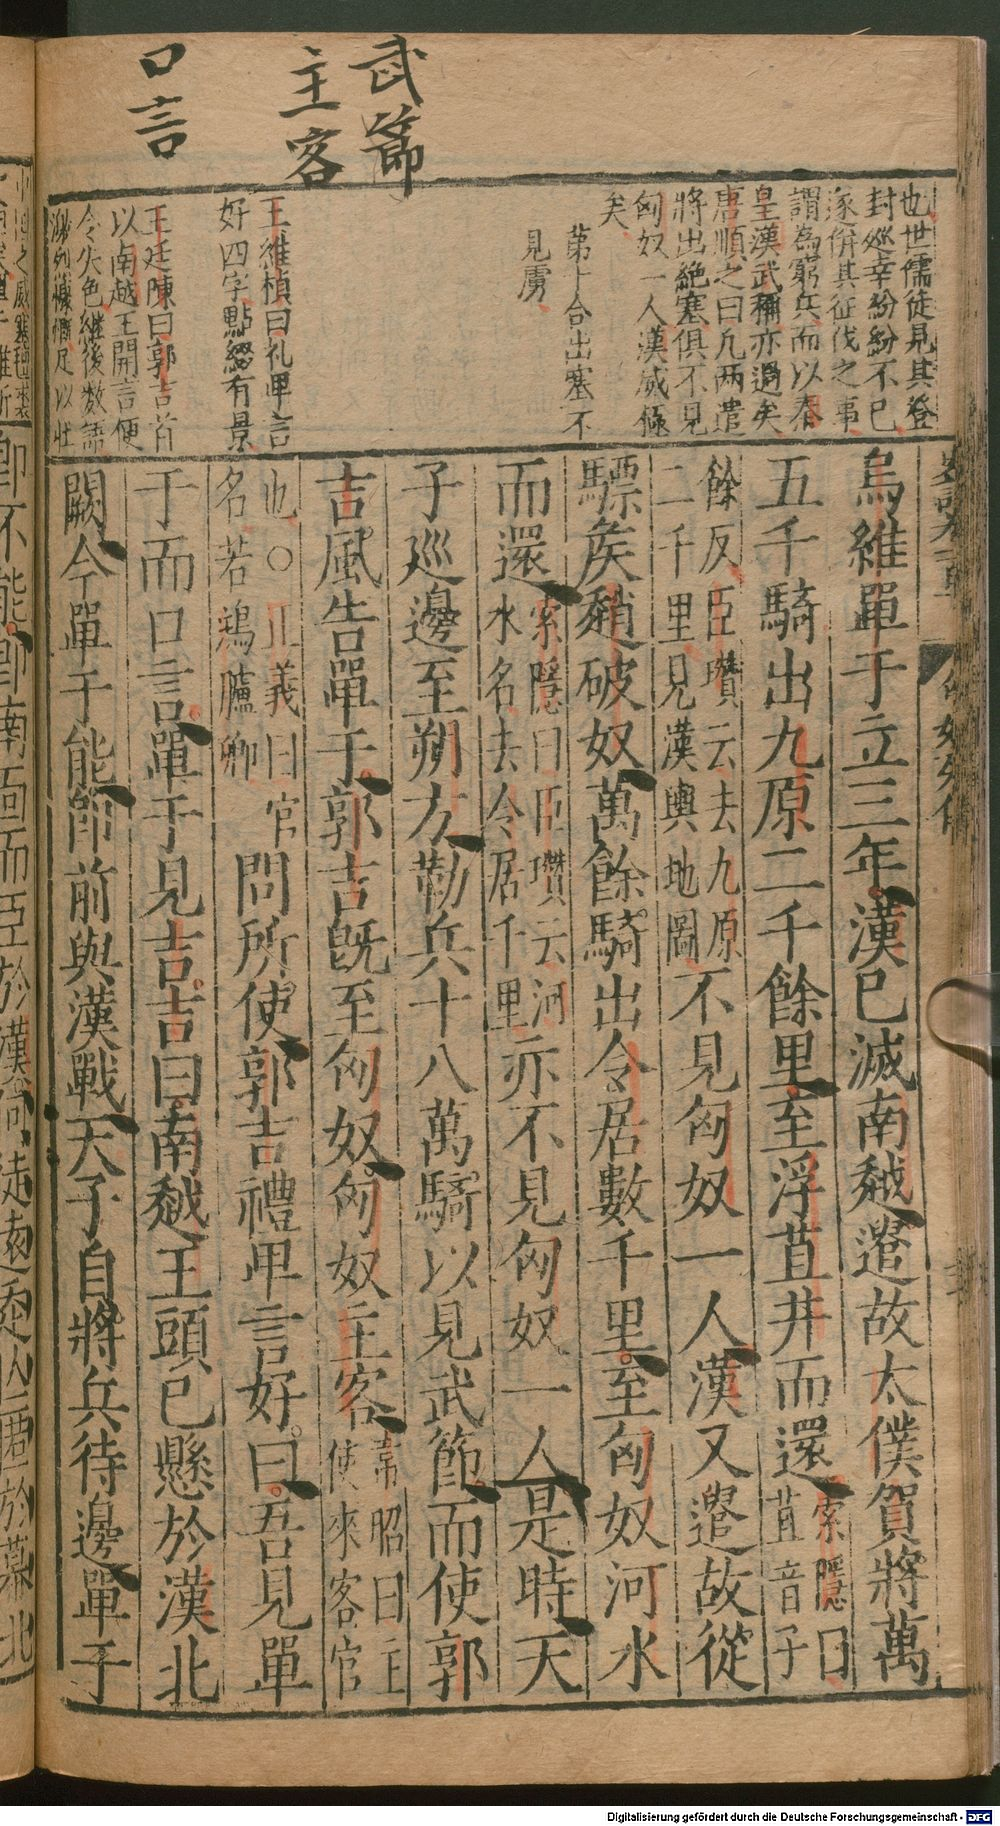 武節
主客
口言
也世儒徒見其登
封巡幸紛紛不已
遂併其征伐之事
謂為窮兵而以春
皇漢武稱亦過矣
唐順之曰凡两遣
將出絶塞俱不見
匈奴一人漢威極
矣
第十合出塞不
見虜
王維楨曰礼卑言
好四字點綴有景
王廷陳曰郭吉首
以南越王開言便
令失色継後数語
烏維單于立三年漢已滅南越遣故太僕賀將萬
五千騎出九原二千餘里至浮苴井而還 索隱曰苴音子
餘反臣瓚云去九原
二千里見漢輿地圖 不見匈奴一人漢又遣故從
驃矦趙破奴萬餘騎出令居數千里至匈奴河水
而還 索隱曰臣瓚云河水名去令居千里 亦不見匈奴一人是時天
子巡邊至朔方勒兵十八萬騎以見武節而使郭
吉風告單于郭吉既至匈奴匈奴主客 韋昭曰主使來客官
也○正義曰官
名若鴻臚卿 問所使郭吉禮卑言好曰吾見單
于而口言單于見吉吉曰南越王頭已懸於漢北
闕今單于能即前與漢戰天子自將兵待邊單于
即不能即南面而臣於漢何徒遠走亾匿於幕北
Digitalisierung gefördert durch die Deutsche Forschungsgemeinschaft - DFG